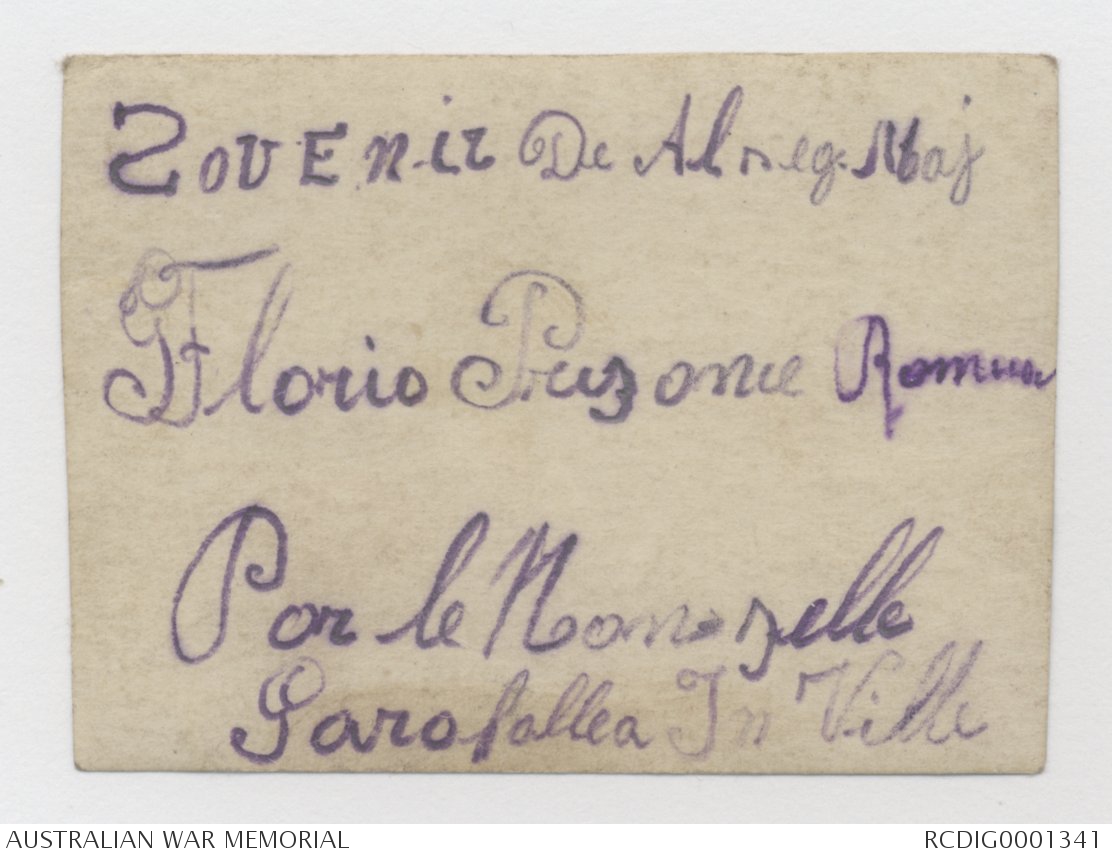 Sovenir De Al reg. Maj
Florio Puzone Romeua
Por le Momozelle
Parofallea In Ville
AUSTRALIAN WAR MEMORIAL
RCDIG0001341